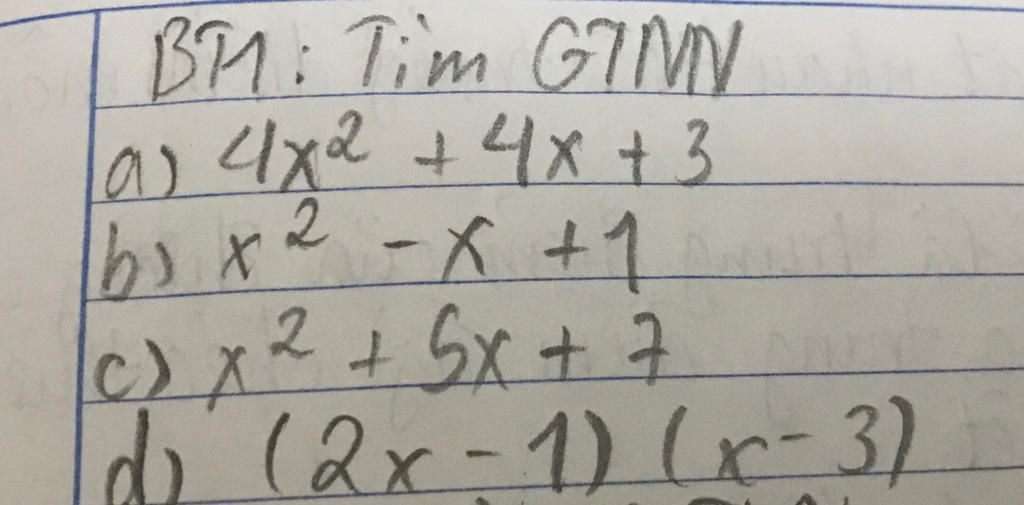 BT1: Tìm GTNN
a) 4x² + 4x + 3
b) x² - x + 1
c) x² + 5x + 7
d) (2x - 1) (x - 3)